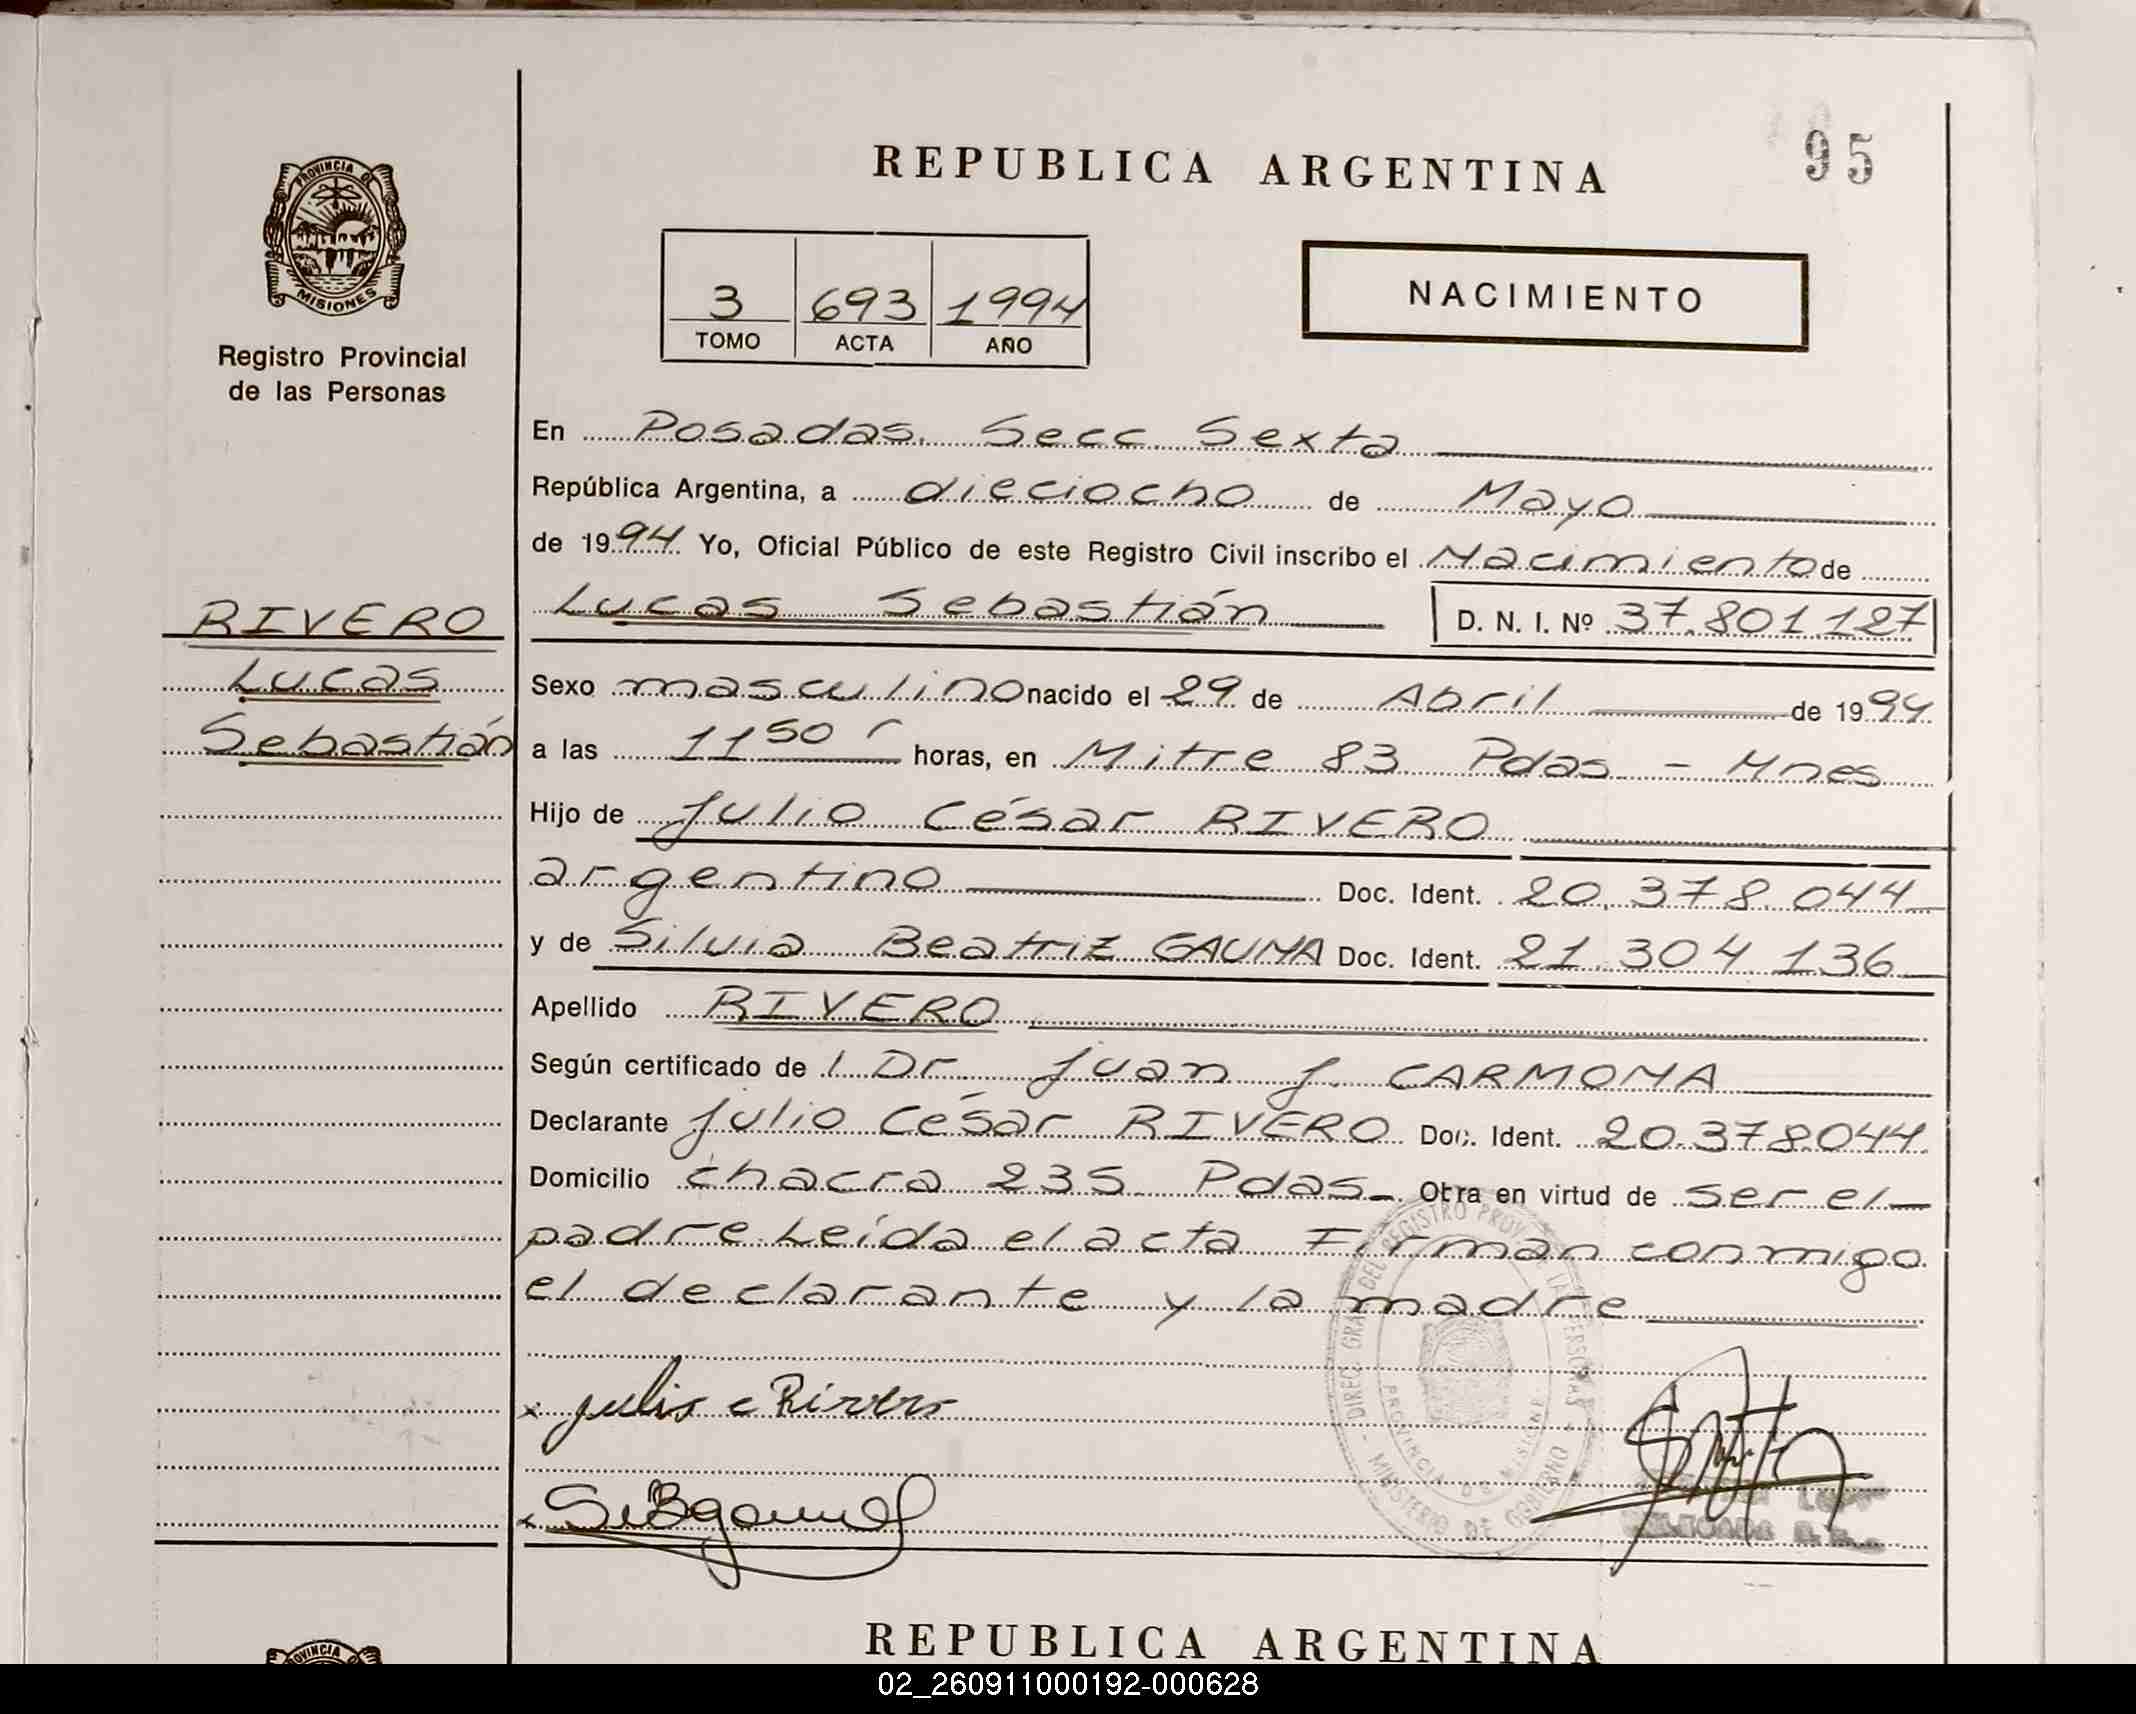 REPUBLICA ARGENTINA
95
PROVINCIA DE
MISIONES
Registro Provincial
de las Personas
3 693 1994
TOMO ACTA AÑO
NACIMIENTO
En Posadas. Secc. Sexta
República Argentina, a dieciocho de Mayo
de 1994 Yo, Oficial Público de este Registro Civil inscribo el Nacimiento de
Lucas Sebastián D. N. I. Nº 37.801.127
RIVERO
Lucas
Sebastián
Sexo masculino nacido el 29 de Abril de 1994
a las 11 50 horas, en Mitre 83 Pdas - Mnes
Hijo de Julio César RIVERO
argentino Doc. Ident. 20.378.044
y de Silvia Beatriz GAUNA Doc. Ident. 21.304.136
Apellido RIVERO
Según certificado de l Dr. Juan J. CARMONA
Declarante Julio César RIVERO Doc. Ident. 20.378.044
Domicilio chacra 235 Pdas - Obra en virtud de ser el
padre Leída el acta Firman conmigo
el declarante y la madre
DIREC. GRAL. DEL REGISTRO PROV. DE LAS PERSONAS
MINISTERIO DE GOBIERNO
PROVINCIA DE MISIONES
x Julio c Rivero
REPUBLICA ARGENTINA
PROVINCIA
02_260911000192-000628